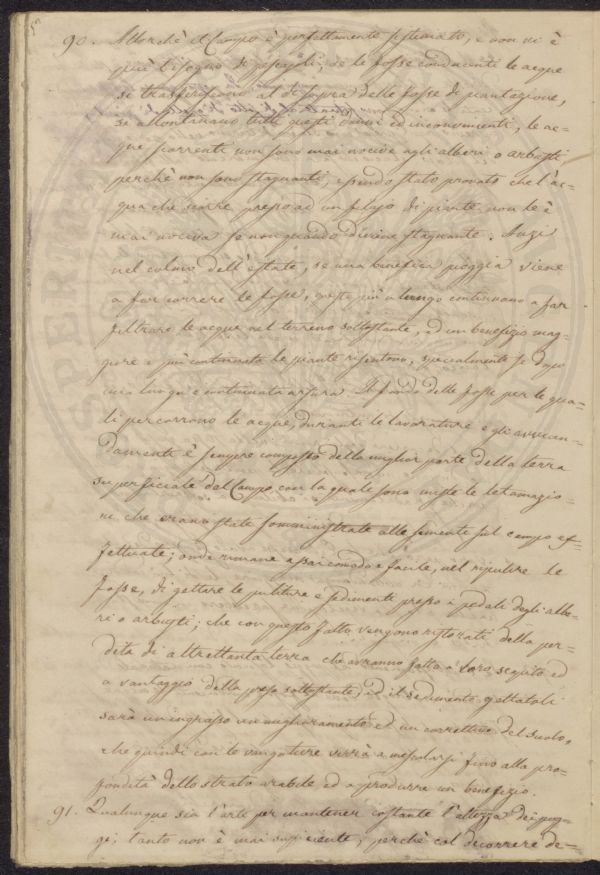 90. Allorchè il Campo è perfettamente sistemato, e non vi è
più bisogno di; se le fosse conducenti le acque
si trasportino al di sopra delle fosse di piantagione,
si allontanano tutti questi danni ed inconvenienti, le ac-
que scorrenti non sono mai nocive agli alberi o arbusti
perchè non sono stagnanti, essendo stato provato che l'ac-
qua che scorre presso ad un filajo di piante non le è
mai nociva se non quando diviene stagnante. Anzi
nel colmo dell'estate, se una benefica pioggia viene
a far correre le fosse, queste più a lungo continuano a far
filtrare le acque nel terreno sottostante, ed un benefizio mag-
giore e più continuato le piante risentono, specialmente se dopo
una lunga e continuata arsura. Il fondo delle fosse per le qua-
li percorrono le acque, durante le lavorature e gli avvicen-
damenti è sempre composto della miglior parte della terra
superficiale del Campo con la quale sono miste le letamazio-
ni che erano state somministrate alle semente sul campo ef-
fettuate; onde rimane assai comodo e facile, nel ripulire le
fosse, di gettare le puliture e sedimenti presso i pedali degli albe-
ri o arbusti; che con questo fatto vengono ristorati della per-
dita di altrettanta terra che avranno fatta a loro seguito ed
a vantaggio della presa sottostante, ed il sedimento gettatoli
sarà un ingrasso un miglioramento ed un correttivo del suolo,
che quindi con le vangature verrà a mescolarsi fino alla pro-
fondità dello strato arabile ed a produrre un benefizio.
91. Qualunque sia l'arte per mantener costante l'altezza dei pog-
gi; tanto non è mai sufficiente, perchè col decorrere de-